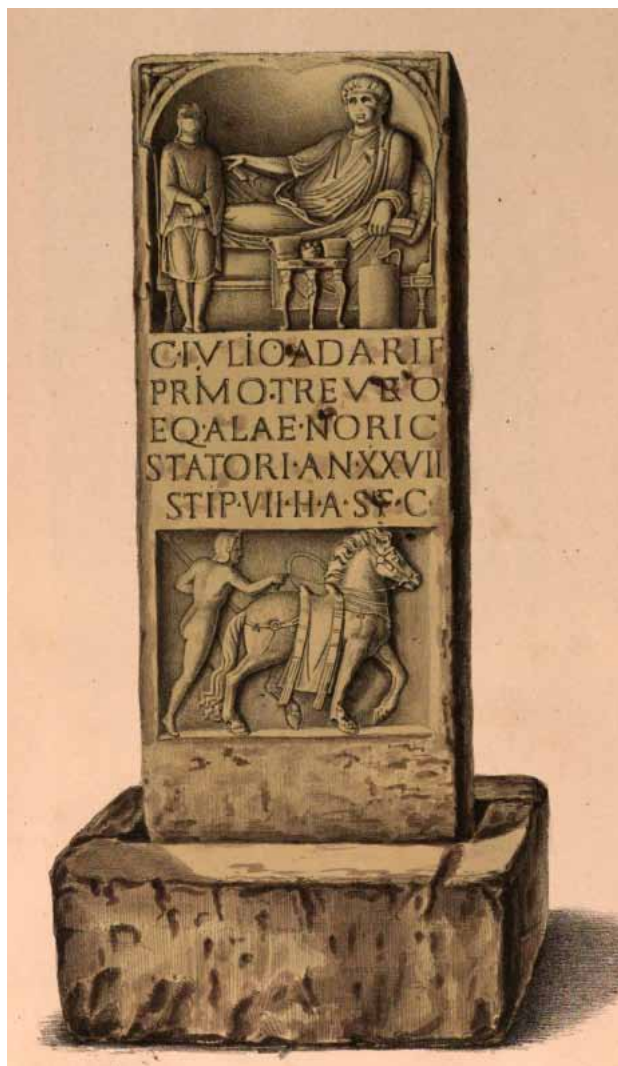 C·IVLIO·ADARI F
PRIMO·TREVERO
EQ·ALAE·NORIC
STATORI·AN·XXVII
STIP·VII·H·A·S·F·C